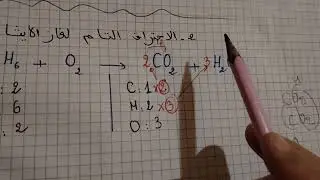 2 - الاحتراق التام لغاز الايثا
H₆ + O₂ → 2CO₂ + 3H₂
: 2 C : 1 × 2
6 H : 2 × 3
: 2 O : 3
CO₂